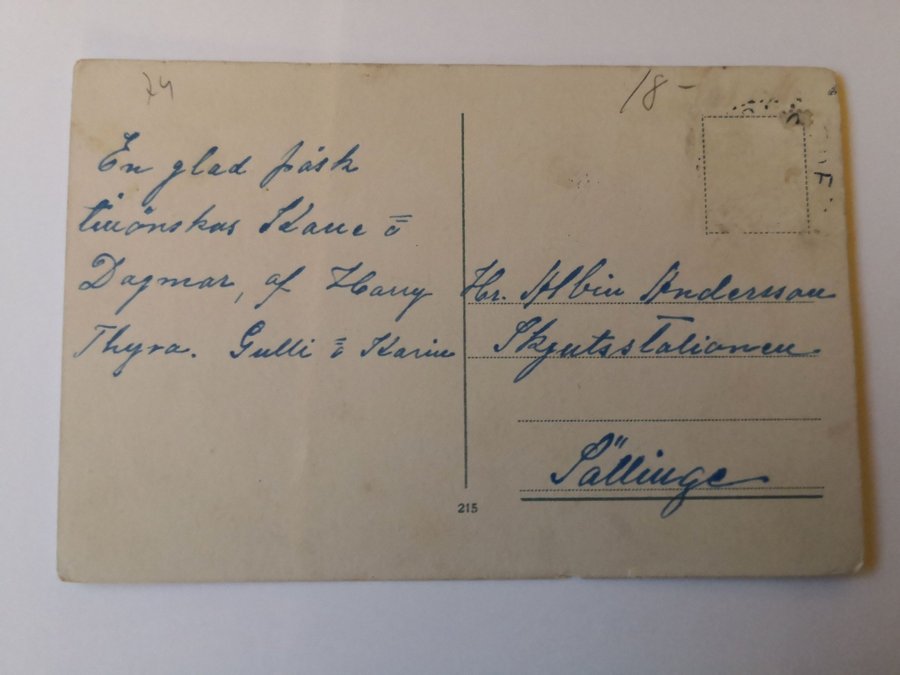 74
18-
En glad påsk
tillönskas Kalle o
Dagmar, af Harry
Thyra. Gulli o Karin
Hr. Albin Andersson
Skjutsstationen
Sällinge
215